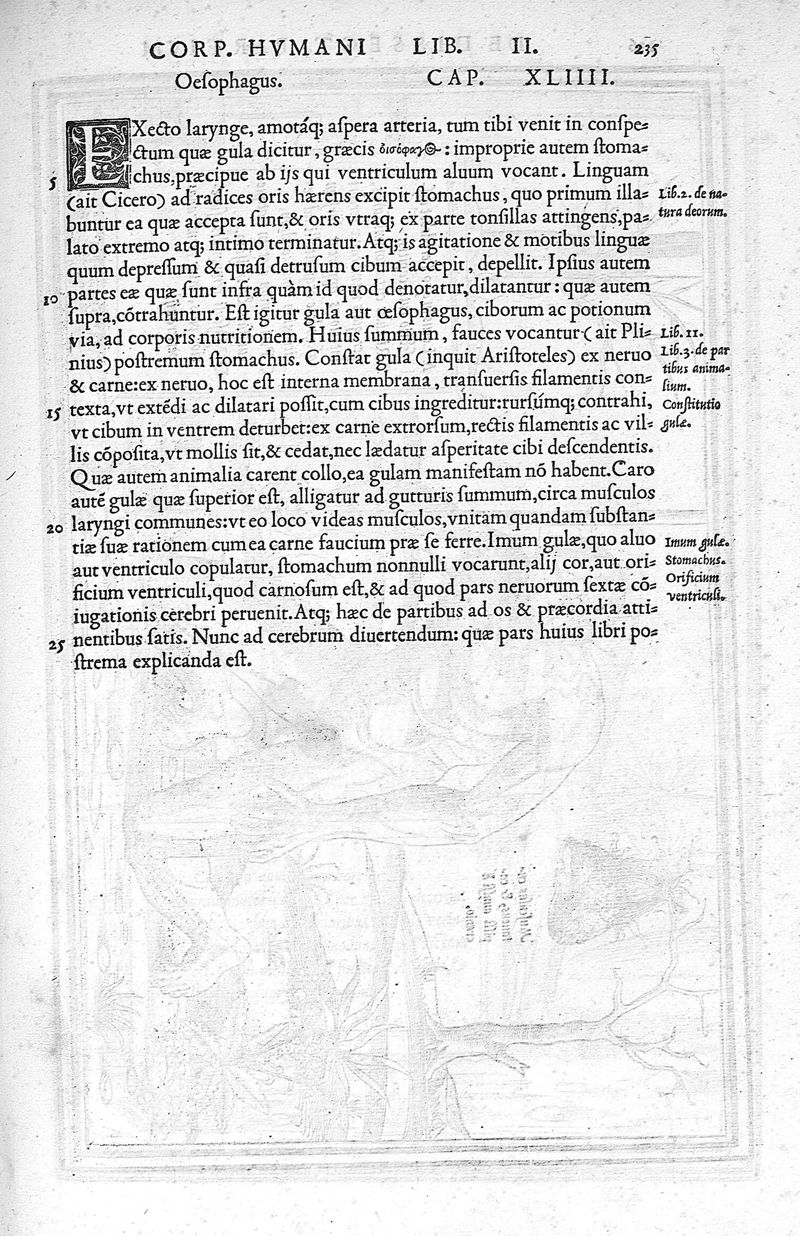 CORP. HVMANI LIB. II. 235
Oeſophagus. CAP. XLIIII.
EXecto larynge, amotáq; aſpera arteria, tum tibi venit in conſpe=
ctum quæ gula dicitur, græcis : improprie autem ſtoma=
5 chus, præcipue ab ijs qui ventriculum aluum vocant. Linguam
(ait Cicero) ad radices oris hærens excipit ſtomachus, quo primum illa= Lib.2. de na-
buntur ea quæ accepta ſunt,& oris vtraq; ex parte tonſillas attingens,pa= tura deorum.
lato extremo atq; intimo terminatur. Atq; is agitatione & motibus linguæ
quum depreſſum & quaſi detruſum cibum accepit, depellit. Ipſius autem
10 partes eæ quæ ſunt infra quàm id quod denotatur,dilatantur: quæ autem
ſupra,cōtrahuntur. Eſt igitur gula aut œſophagus, ciborum ac potionum
via, ad corporis nutritionem. Huius ſummum, fauces vocantur (ait Pli= Lib. 11.
nius) poſtremum ſtomachus. Conſtat gula (inquit Ariſtoteles) ex neruo Lib.3. de par
& carne:ex neruo, hoc eſt interna membrana, tranſuerſis filamentis con= tibus anima-
ſium.
15 texta,vt extēdi ac dilatari poſſit,cum cibus ingreditur:rurſúmq; contrahi, Conſtitutio
vt cibum in ventrem deturbet:ex carne extrorſum,rectis filamentis ac vil= gulæ.
lis cōpoſita,vt mollis ſit,& cedat,nec lædatur aſperitate cibi deſcendentis.
Quæ autem animalia carent collo,ea gulam manifeſtam nō habent.Caro
autē gulæ quæ ſuperior eſt, alligatur ad gutturis ſummum,circa muſculos
20 laryngi communes:vt eo loco videas muſculos,vnitam quandam ſubſtan=
tiæ ſuæ rationem cum ea carne faucium præ ſe ferre.Imum gulæ,quo aluo Imum gulæ.
aut ventriculo copulatur, ſtomachum nonnulli vocarunt,alij cor,aut ori= Stomachus.
ficium ventriculi,quod carnoſum eſt,& ad quod pars neruorum ſextæ cō= Orificium
iugationis cerebri peruenit. Atq; hæc de partibus ad os & præcordia atti= ventriculi.
25 nentibus ſatis. Nunc ad cerebrum diuertendum: quæ pars huius libri po=
ſtrema explicanda eſt.